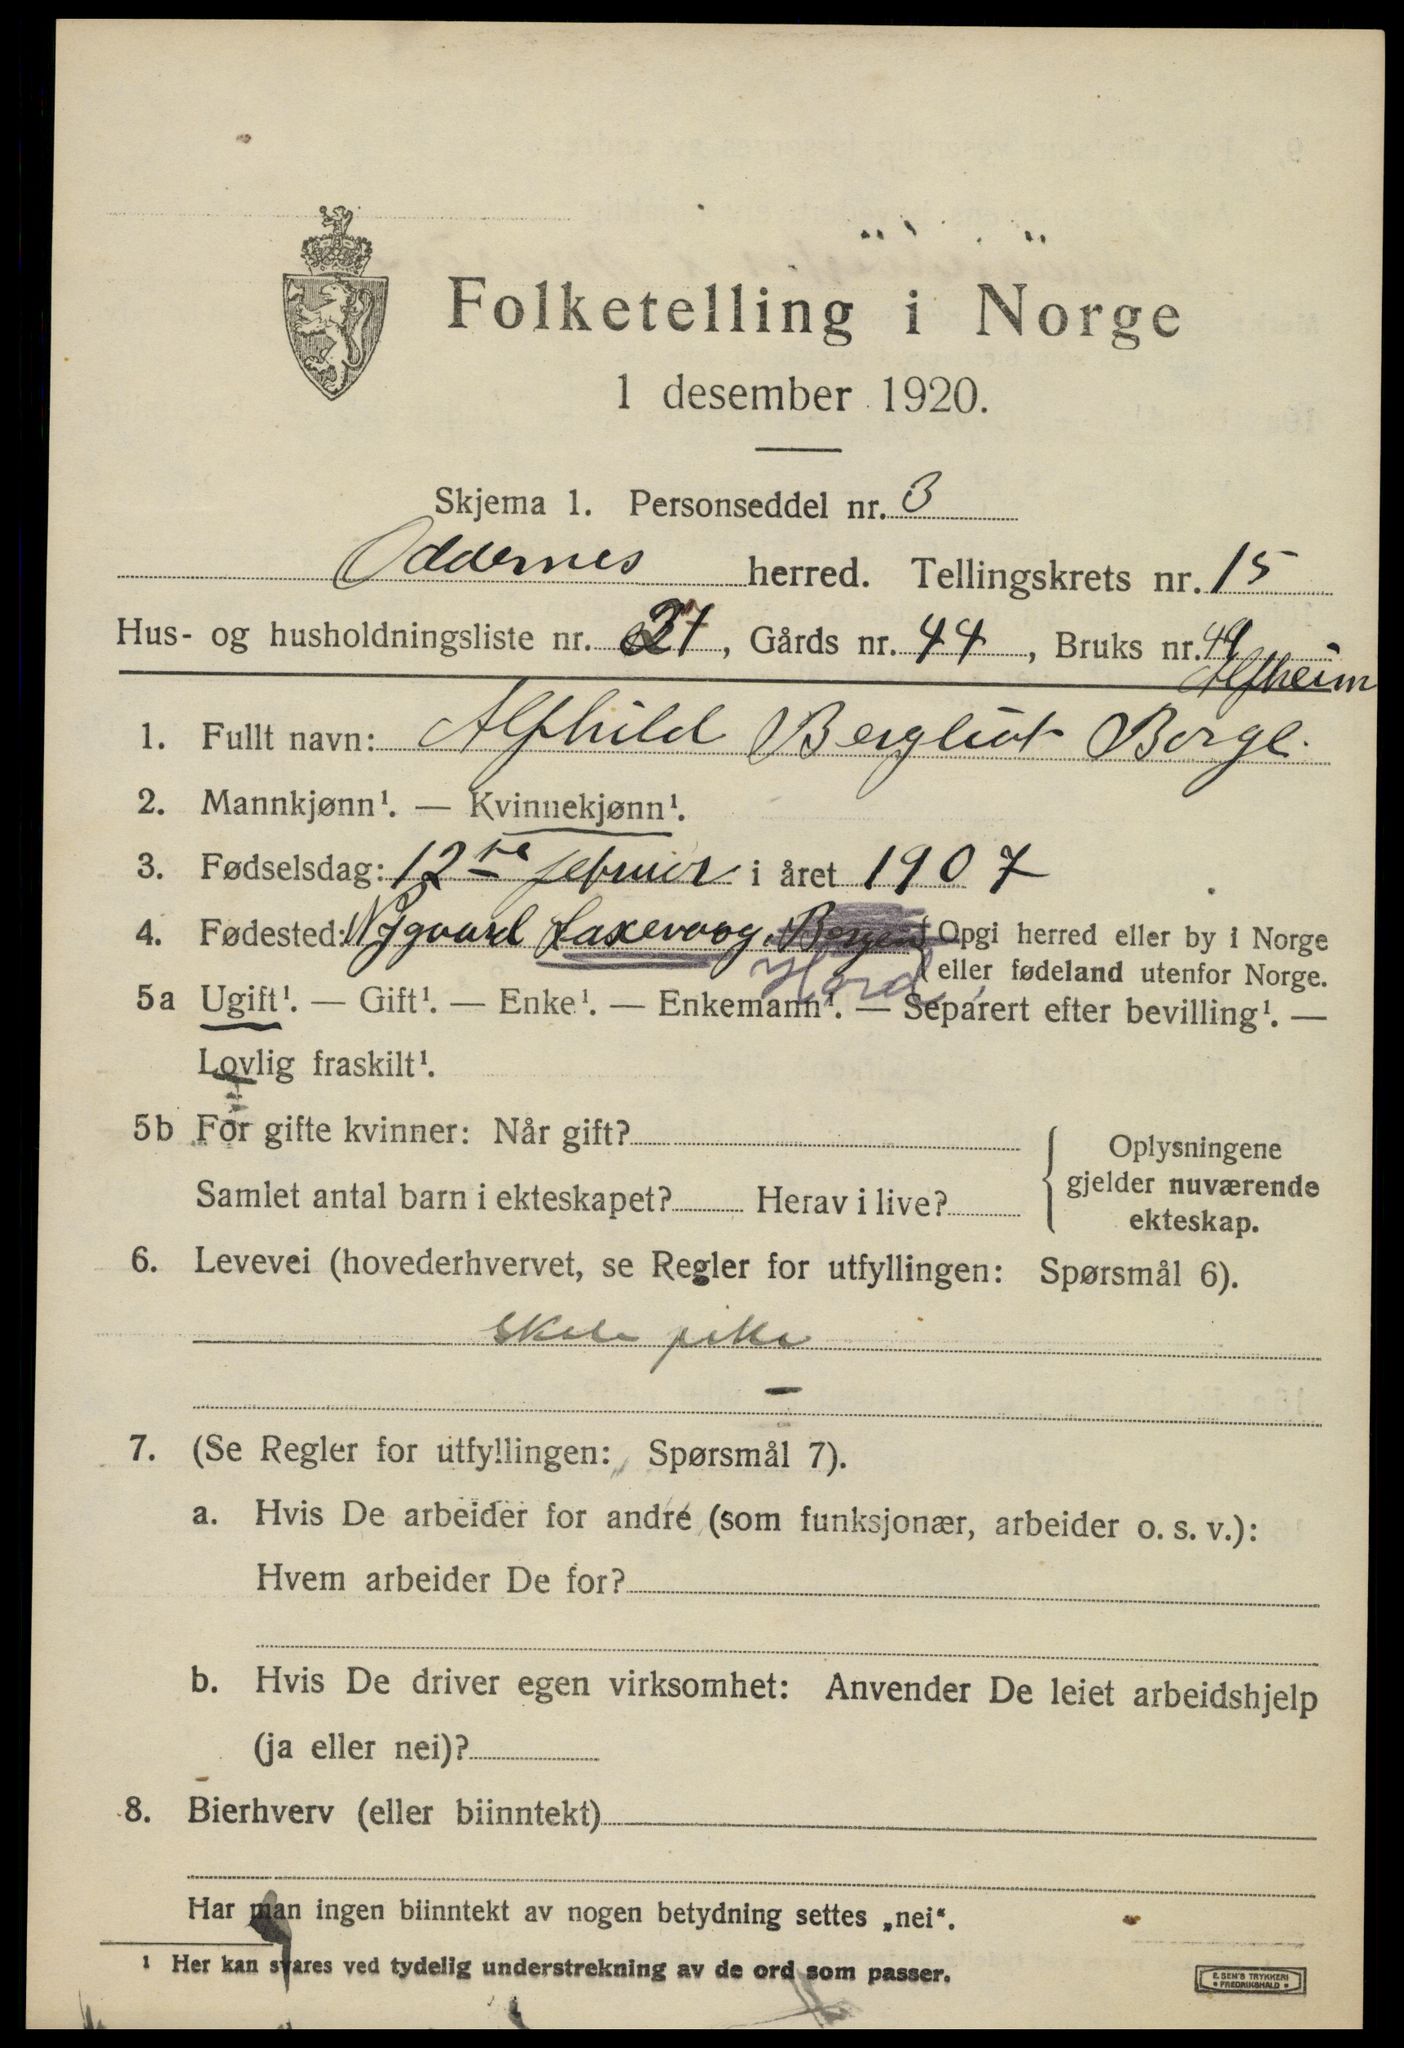 Folketelling i Norge
1 desember 1920.
Skjema 1. Personseddel nr. 3
Oddernes herred. Tellingskrets nr. 15
Hus- og husholdningsliste nr. , Gårds nr. 44, Bruks nr. 49
Alfheim
1. Fullt navn: Alfhild Bergliot Borge.
2. Mannkjønn¹. — Kvinnekjønn¹.
3. Fødselsdag: 12te februar i året 1907
4. Fødested: Nygaard Laxevaag. Bergen { Opgi herred eller by i Norge
Hord. eller fødeland utenfor Norge.
5a Ugift¹. — Gift¹. — Enke¹. — Enkemann¹. — Separert efter bevilling¹. —
Lovlig fraskilt¹.
5b For gifte kvinner: Når gift? { Oplysningene
Samlet antal barn i ekteskapet? Herav i live? gjelder nuværende
ekteskap.
6. Levevei (hovederhvervet, se Regler for utfyllingen: Spørsmål 6).
Skole pike
7. (Se Regler for utfyllingen: Spørsmål 7).
a. Hvis De arbeider for andre (som funksjonær, arbeider o. s. v.):
Hvem arbeider De for?
b. Hvis De driver egen virksomhet: Anvender De leiet arbeidshjelp
(ja eller nei)?
8. Bierhverv (eller biinntekt)
Har man ingen biinntekt av nogen betydning settes „nei".
¹ Her kan svares ved tydelig understrekning av de ord som passer.
E. SEM'S TRYKKERI
• FREDRIKSHALD •